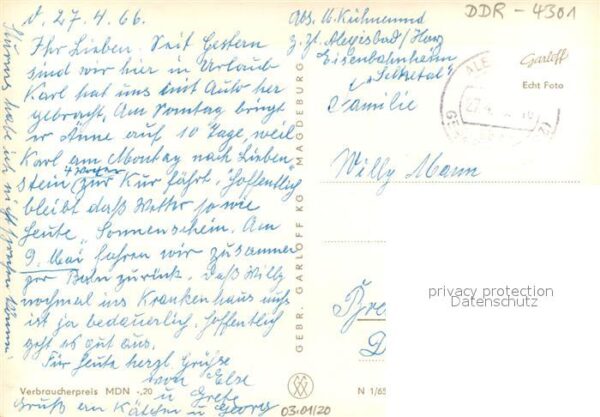 d. 27.4.66.
Ihr Lieben. Seit Gestern
sind wir hier in Urlaub
Karl hat uns mit Auto her
gebracht. Am Sonntag bringt
er Änne auf 10 Tage, weil
Karl am Montag nach Lieben
4 Wochen
stein zur Kur fährt. Hoffentlich
bleibt daß Wetter so wie
heute, Sonnenschein. Am
9. Mai fahren wir zusammen
zur Bahn zurück. Daß Willy
nochmal ins Krankenhaus muß
ist ja bedauerlich, hoffentlich
geht es gut aus.
Für heute herzl. Grüße
von Else
u Grete
Gruß an Käthen u Georg
Verbraucherpreis MDN -,20
GEBR. GARLOFF KG MAGDEBURG
Abs. U. Kühnemund
z. Zt. Alexisbad/Harz
Eisenbahnheim
"Selketal"
DDR - 4301
Garloff
Echt Foto
ALE
27.4.
Familie
Willy Mann
privacy protection
Datenschutz
N 1/65
03.01/20